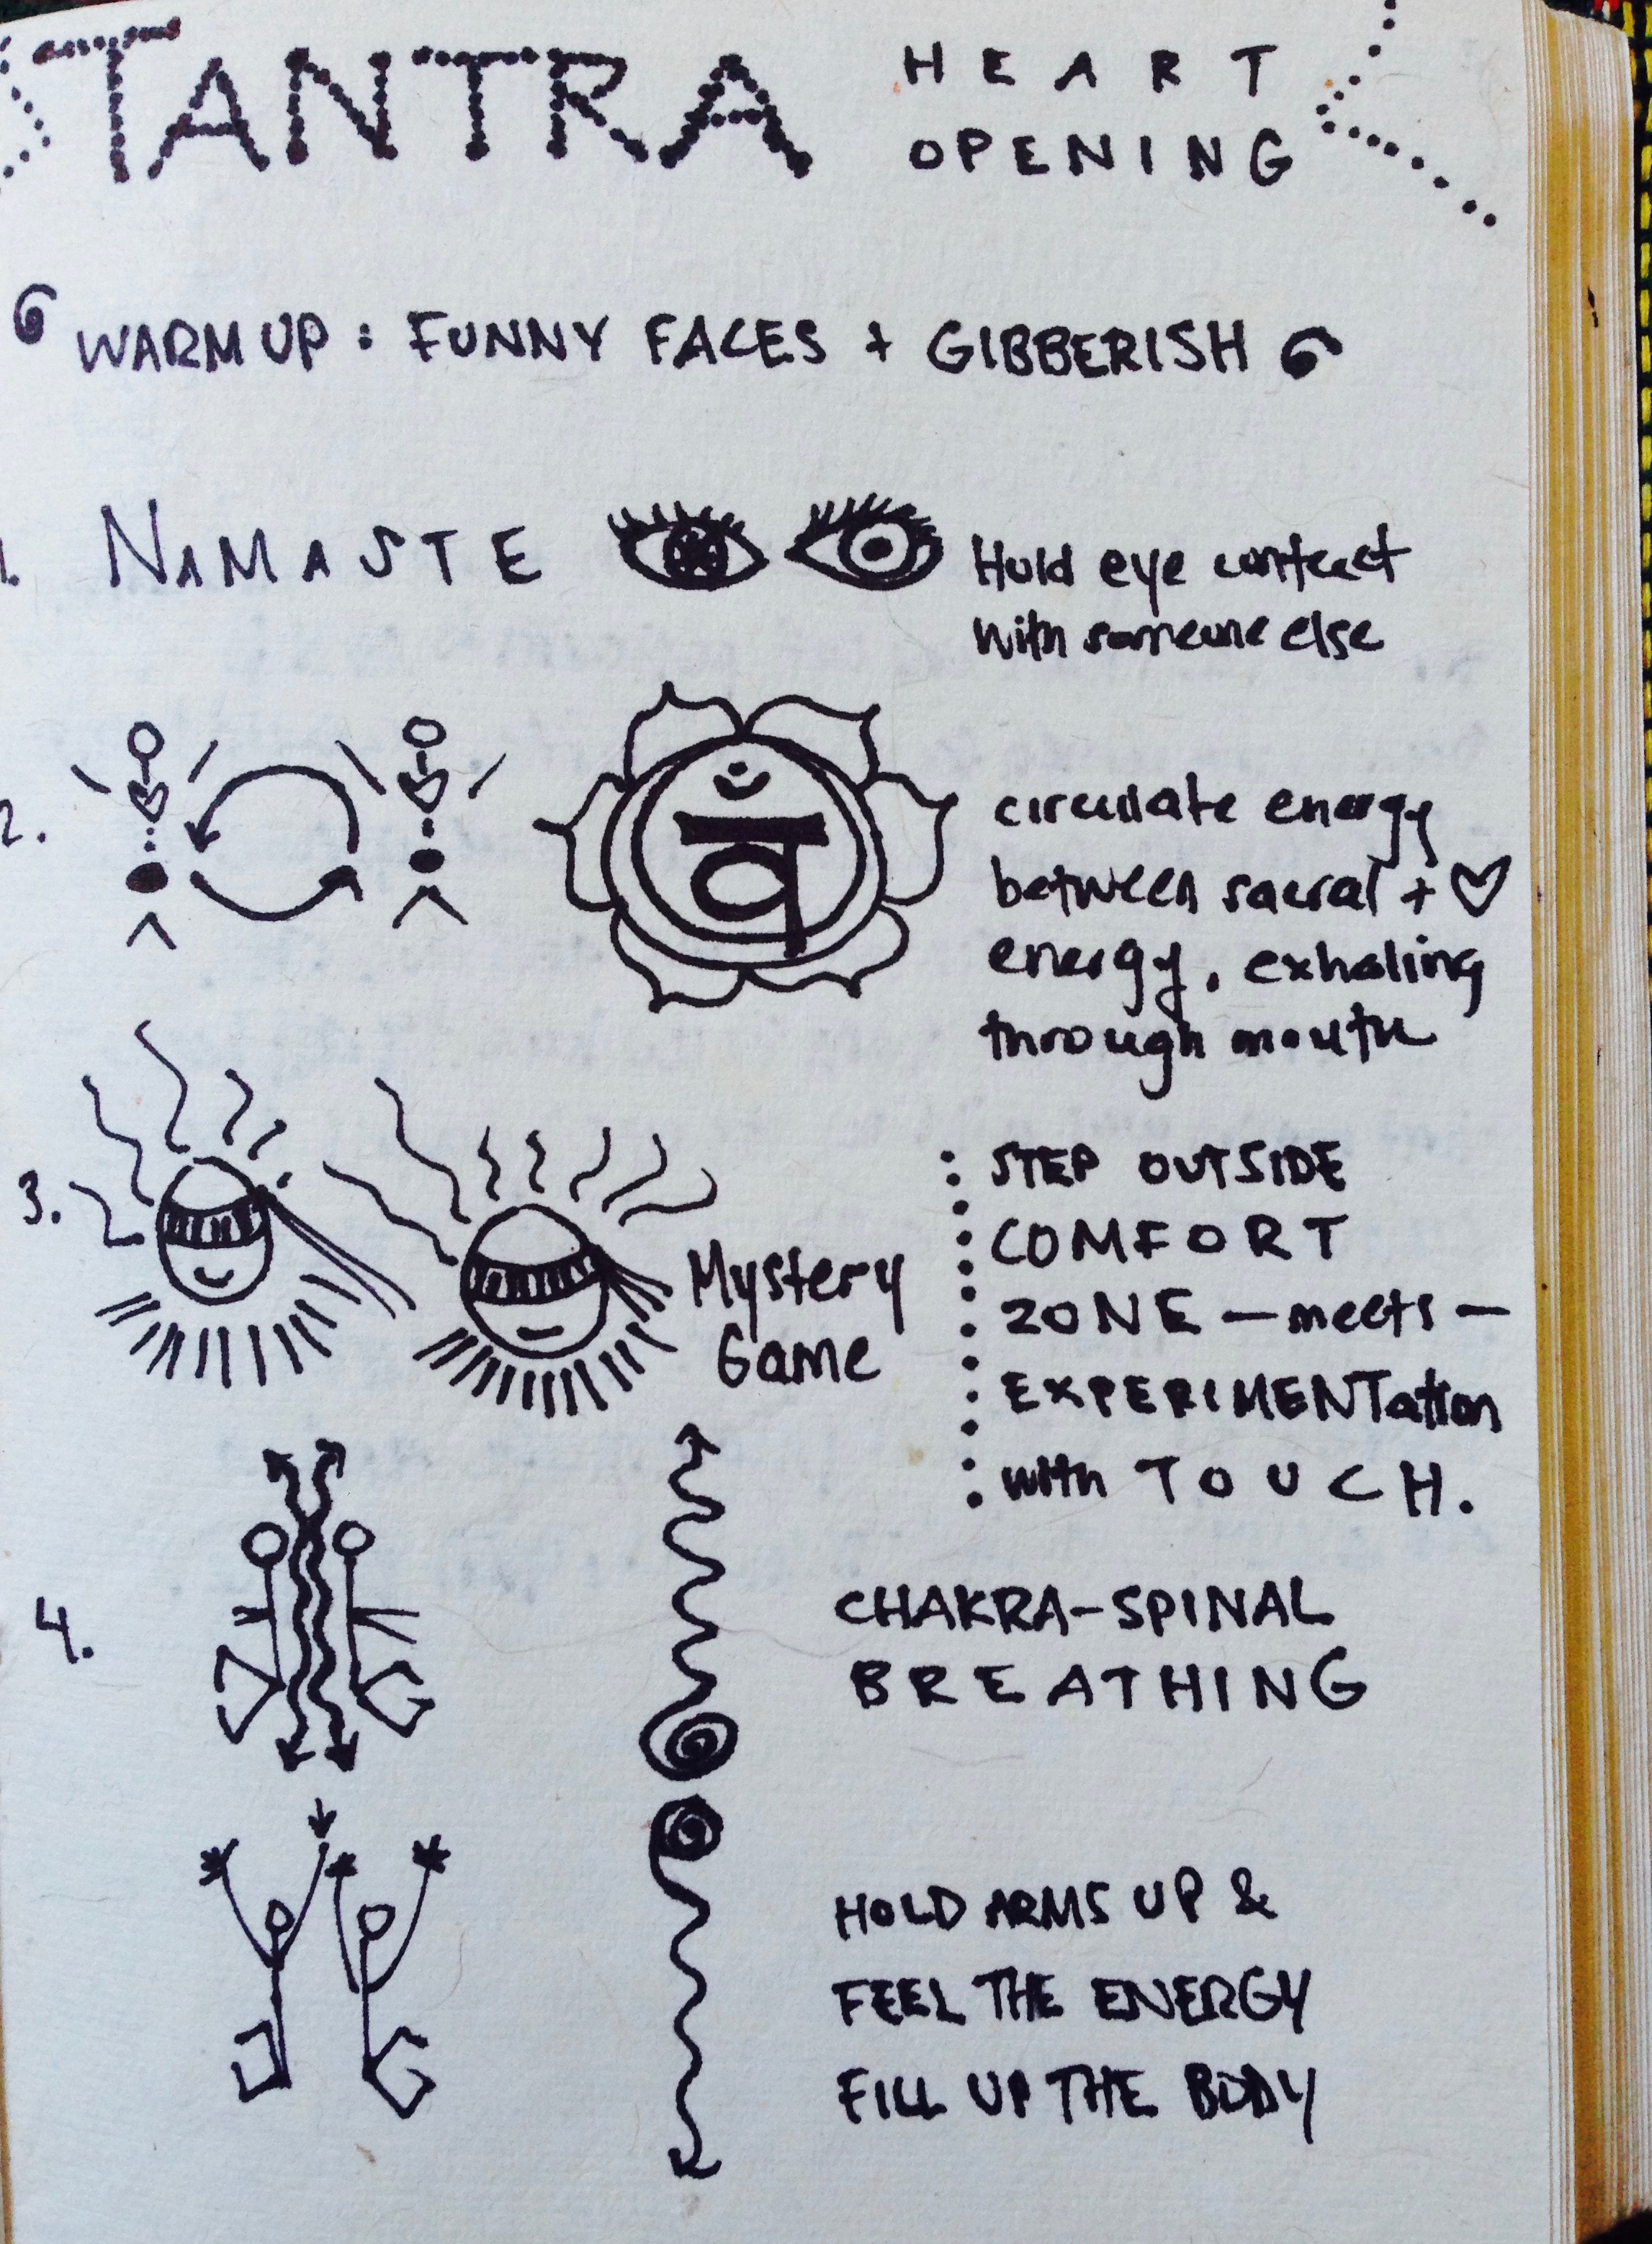 TANTRA HEART
OPENING
WARM UP : FUNNY FACES + GIBBERISH
1. NAMASTE Hold eye contact
with someone else
2. वं circulate energy
between sacral + ♡
energy, exhaling
through mouth
3. Mystery
Game
STEP OUTSIDE
COMFORT
ZONE — meets —
EXPERIMENTation
with TOUCH.
4. CHAKRA-SPINAL
BREATHING
HOLD ARMS UP &
FEEL THE ENERGY
FILL UP THE BODY